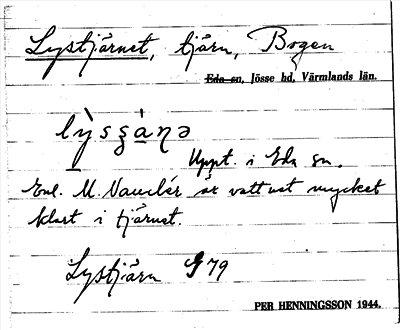 Lystjärnet, tjärn, Bogen
Eda sn, Jösse hd, Värmlands län.
Uppt. i Eda sn.
Enl. M. Vauclér är vattnet mycket
klart i tjärnet.
Lystjärn 979
PER HENNINGSSON 1944.